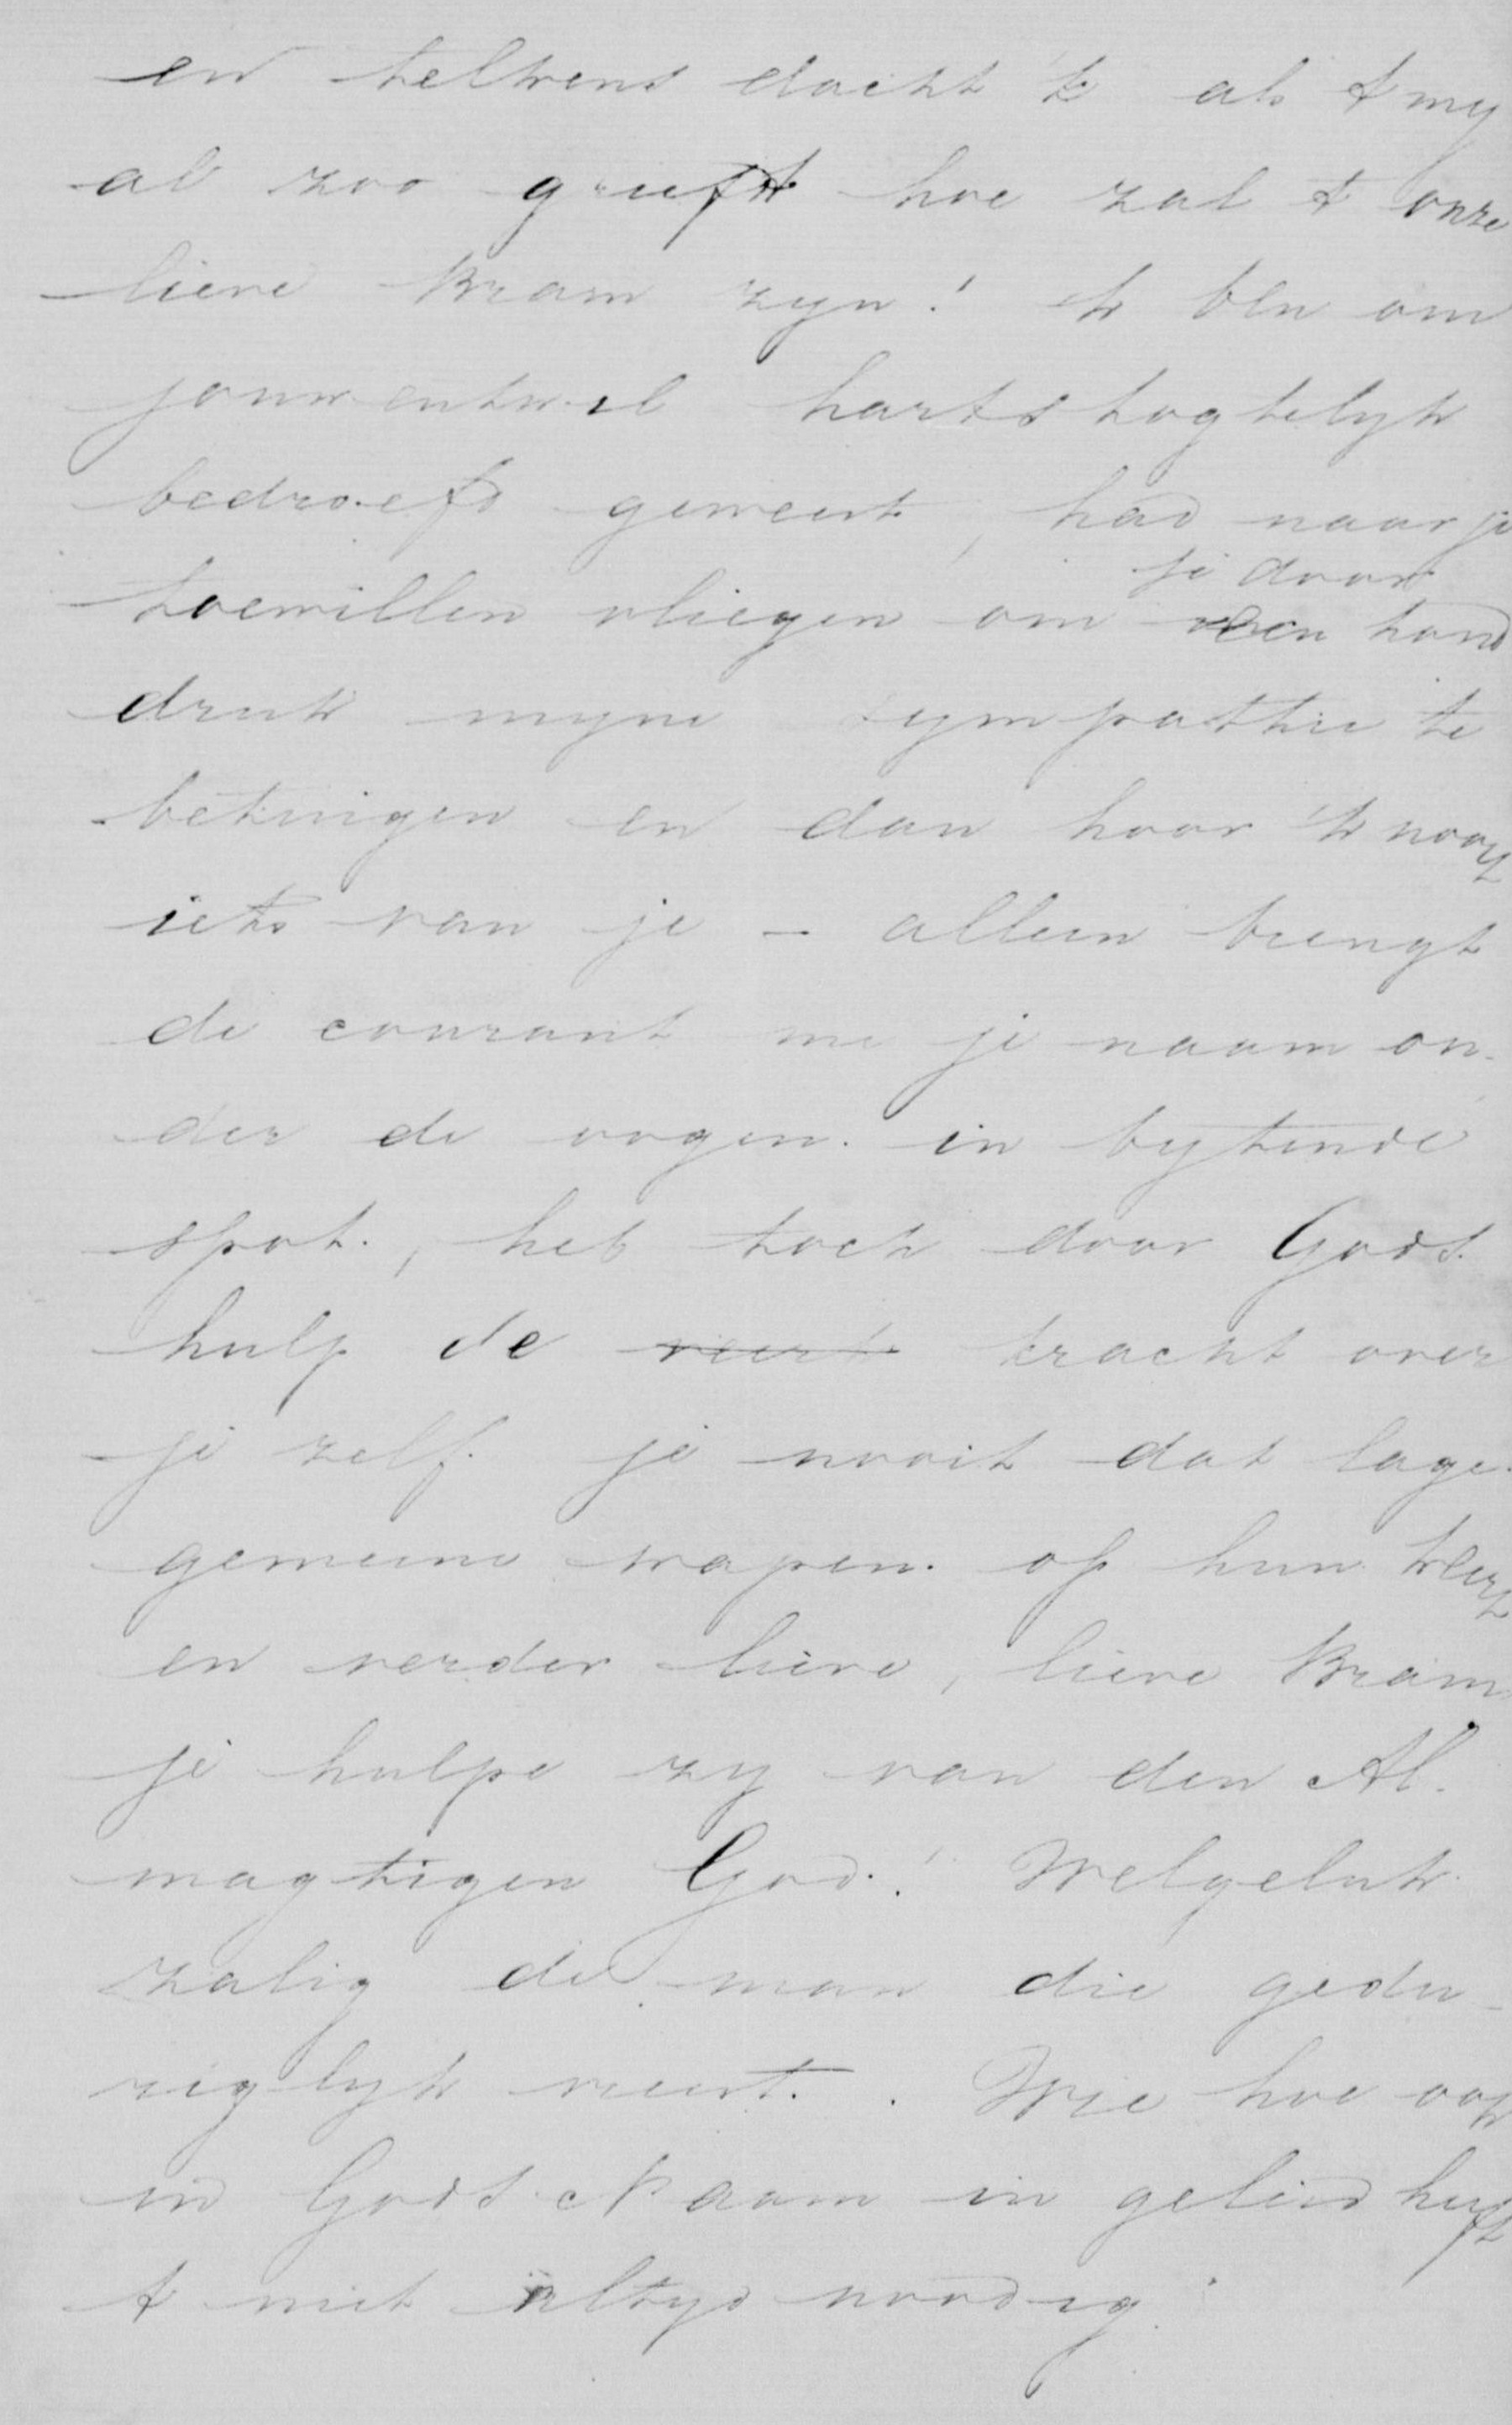 en telkens dacht 'k als 't my
al zoo grieft hoe zal 't onze
lieve Bram zyn! 'k ben om
jouwentwil hartstogtelyk
bedroefd geweest, had naar je
toewillen vliegen om je door
een hand
druk myne sympathie te
betuigen en dan hoor 'k nooit
iets van je – alleen brengt
de courant me je naam on-
der de oogen. in bytende
spot., heb toch door Gods
hulp de kracht over
je zelf. je nooit dat lage.
gemeene wapen. op hun
en verder lieve, lieve Bram
je hulpe zy van den Al-
magtigen God.! Welgeluk-
zalig de man die gedu-
riglyk vreest.. Wie hoe ook
in Gods Naam in geleid heeft
't niet altyd noodig.